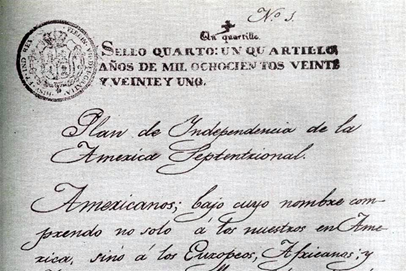 No. 1.
Un quartillo.
SELLO QUARTO: UN QUARTILLO,
AÑOS DE MIL OCHOCIENTOS VEINTE
Y VEINTE Y UNO.
Plan de Independencia de la
America Septentrional.
Americanos; bajo cuyo nombre com-
prendo no solo á los nuestros en Ame-
rica, sinó á los Europeos, Africanos; y